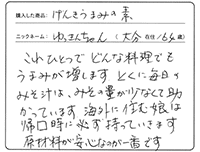 購入した商品: げんきうまみの素
ニックネーム: ゆっきんちゃん (大分 在住/64歳)
これひとつで どんな料理でも
うまみが増します とくに毎日の
みそ汁は、みその量が少なくて助
かっている 海外に住む娘は
帰口時に必ず持っていきます
原材料が安心なのが一番です